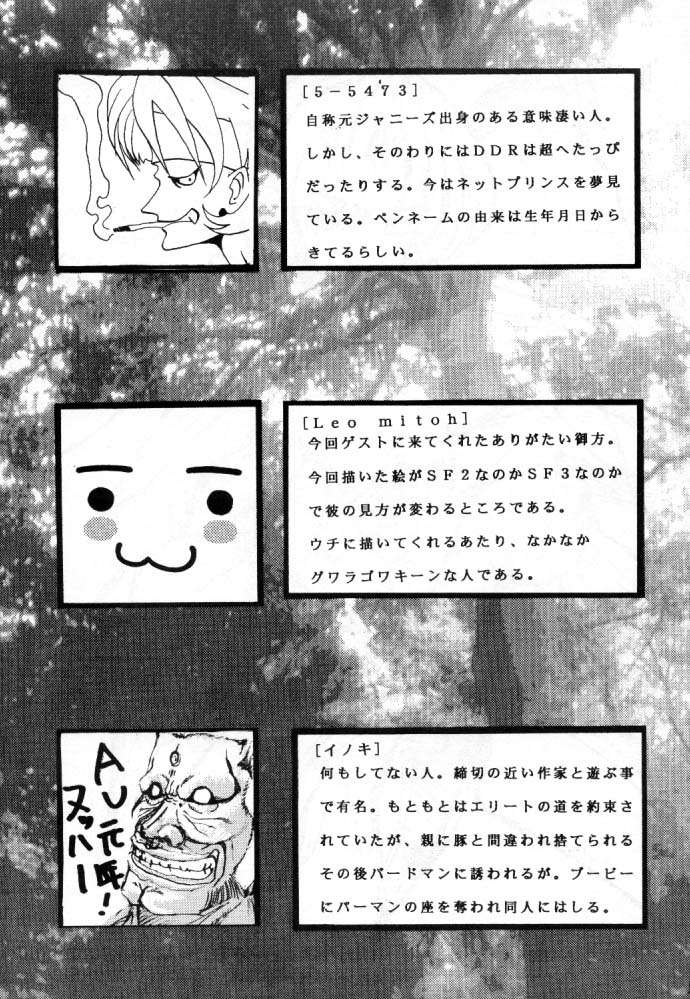 [5-5473]
自称元ジャニーズ出身のある意味凄い人。
しかし、そのわりにはDDRは超へたっぴ
だったりする。今はネットプリンスを夢見
ている。ペンネームの由来は生年月日から
きてるらしい。
[Leo mitoh]
今回ゲストに来てくれたありがたい御方。
今回描いた絵がSF2なのかSF3なのか
で彼の見方が変わるところである。
ウチに描いてくれるあたり、なかなか
グワラゴワキーンな人である。
AU元年!
ヌッハー
[イノキ]
何もしてない人。締切の近い作家と遊ぶ事
で有名。もともとはエリートの道を約束さ
れていたが、親に豚と間違われ捨てられる
その後バードマンに誘われるが。ブービー
にパーマンの座を奪われ同人にはしる。